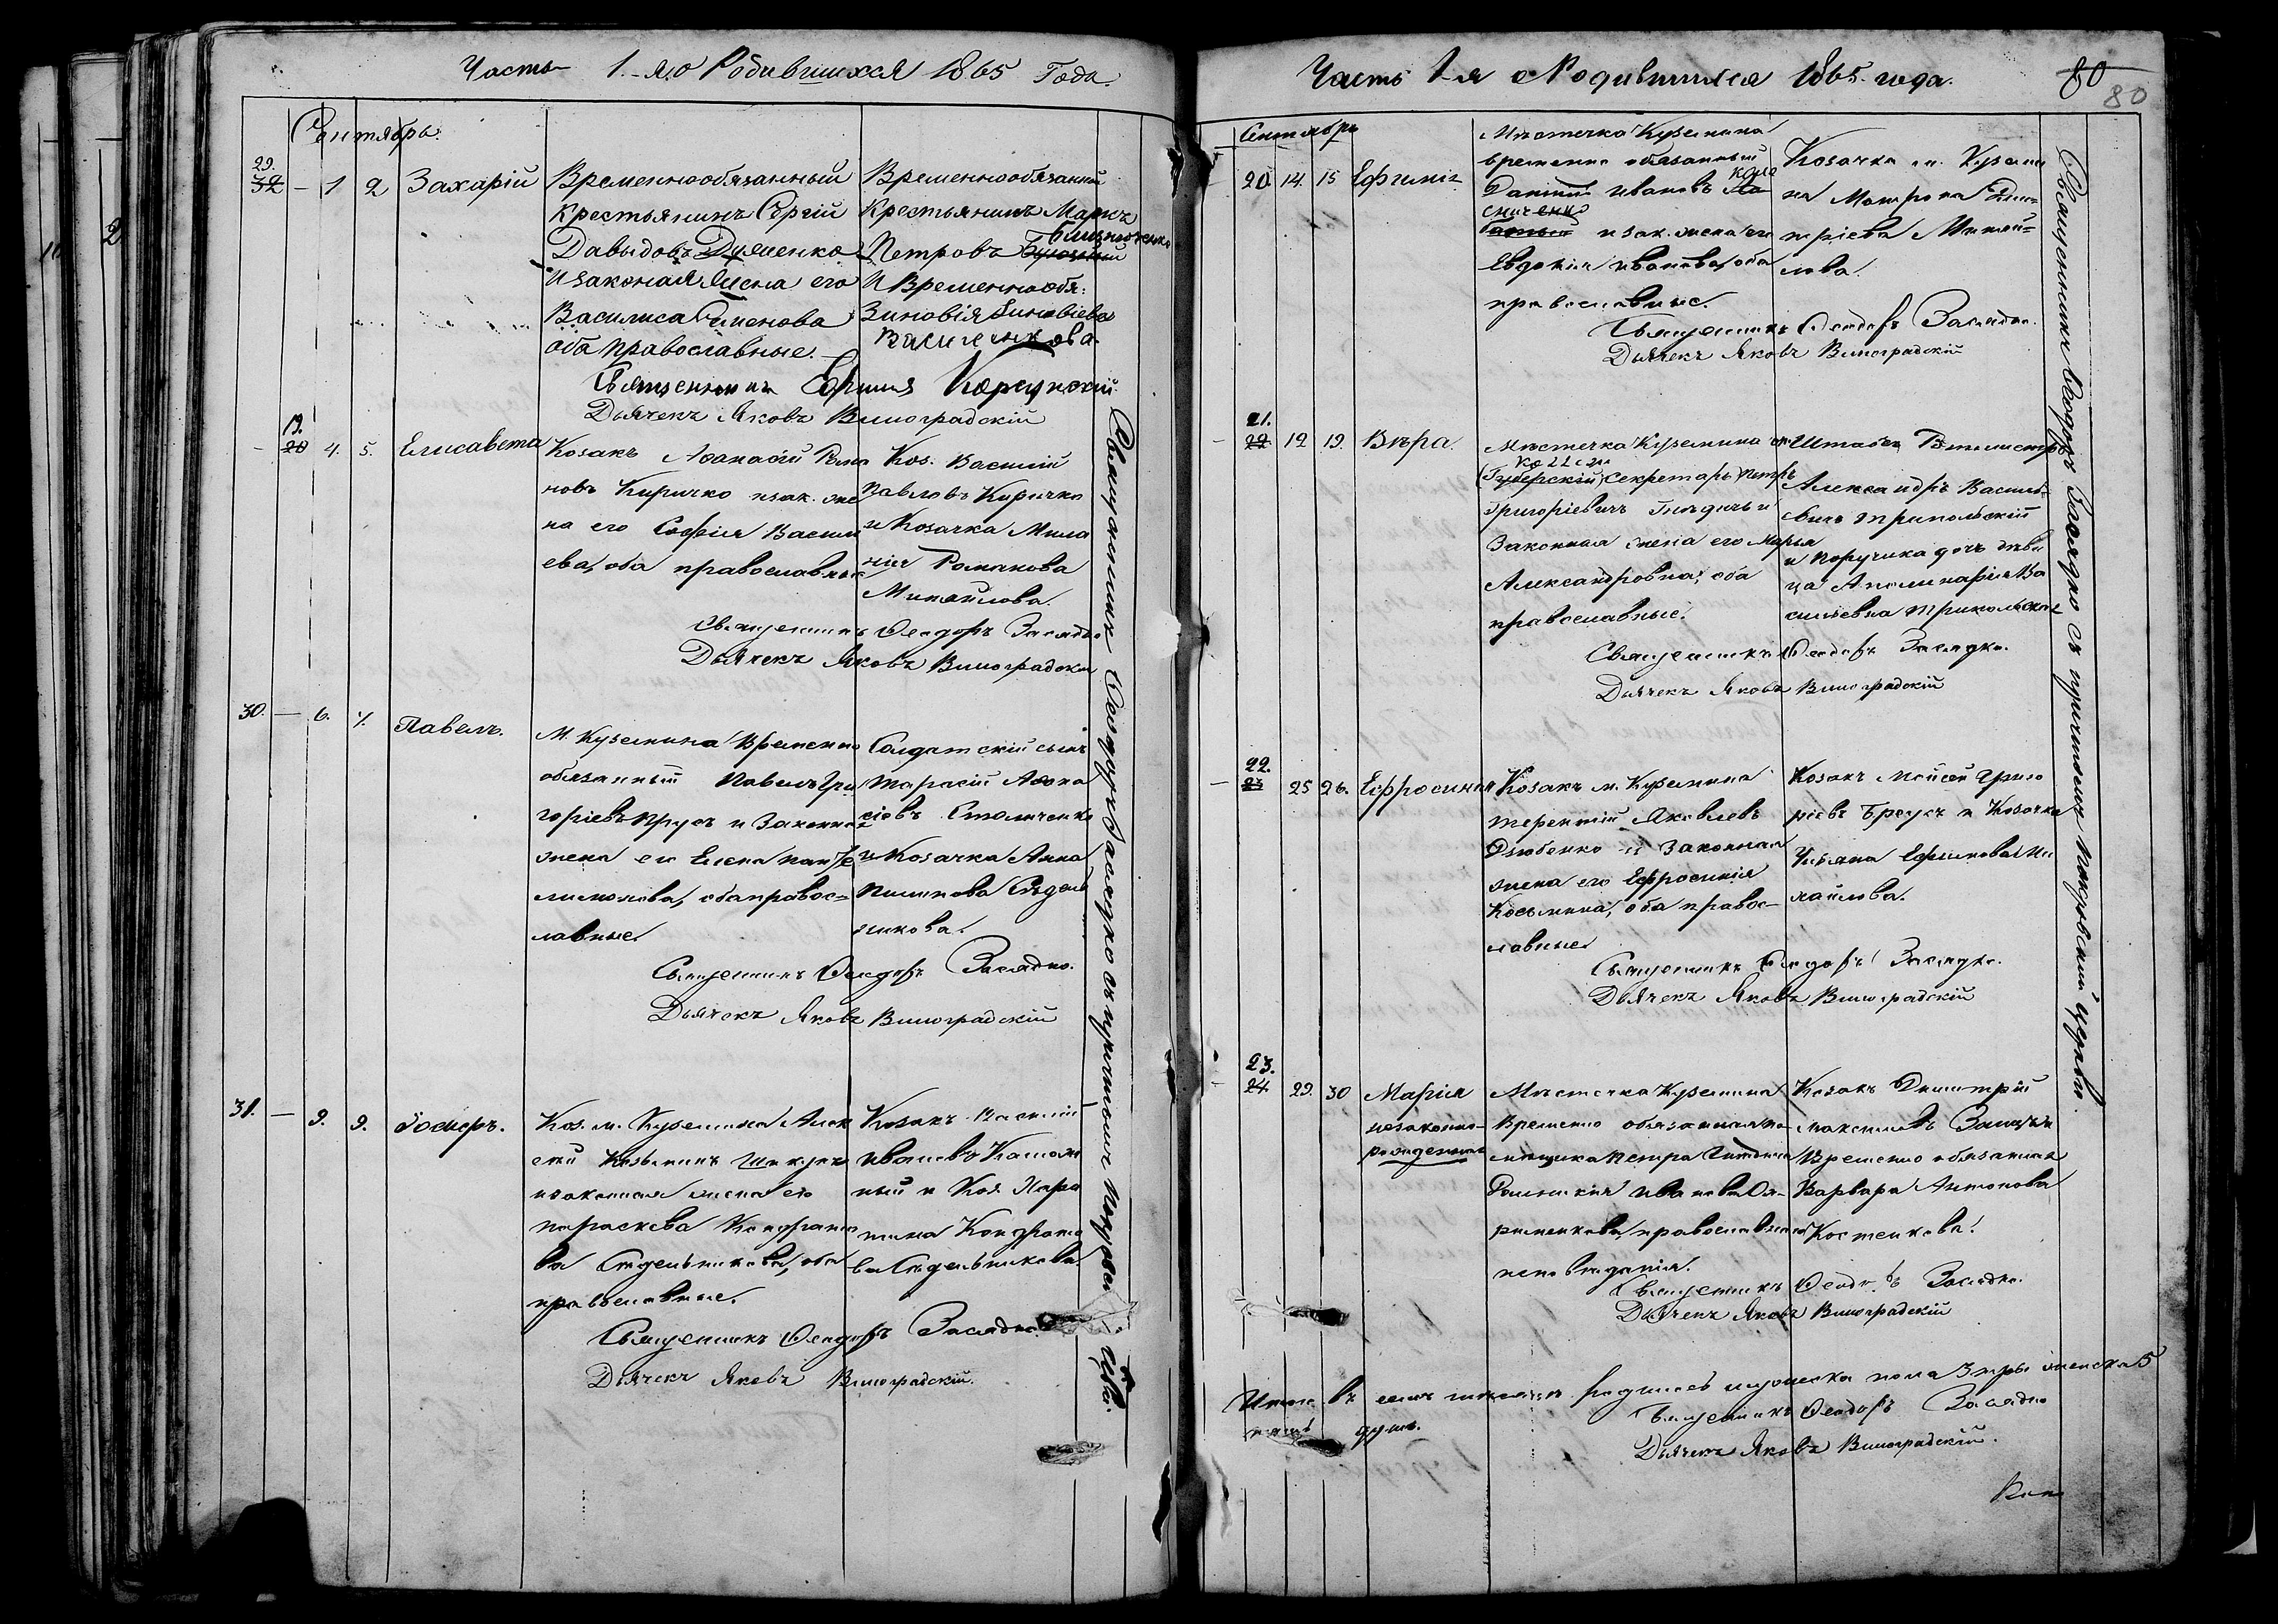 Часть 1.-я о Родившихся 1865 Года.
Сентябрь.
29.
32 - 1 2 Захарій
Временнообязанный
крестьянинъ Сергій
Давыдовъ Дяшенко
и законая Жена его
Василиса Семенова
оба православные.
Временнообязаный
Крестьянинъ Маркъ
Петровъ
и Временнообя:
Зиновія Зиновіева
Василенкова.
Священникъ Ефимъ Корсунскій
Дьячекъ Яковъ Виноградскій
19.
20 4. 5. Елисавета
Козакъ Аѳанасій Рома
новъ Киричко и зак. же
на его Софія Васили
ева, оба православные
Коз. Василій
Павловъ Киричко
и Козачка Мила
нія Романова
Михайлова.
Священникъ Ѳеодоръ Заслядко
Дьячекъ Яковъ Виноградскій
30. - 6. 7. Павелъ.
М. Куземина Временно
обязанный Павелъ Гри
горіевъ Прусъ и Законная
жена его Елена Панте
лимонова, оба правос=
лавные.
Солдатскій сынъ
Тарасій Аѳана
сіевъ
и Козачка Анна

Священникъ Ѳеодоръ Заслядко.
Дьячекъ Яковъ Виноградскій
31. - 9. 9. Іосифъ.
Коз. м. Куземина Алек
сѣй Козьминъ
и законная жена его
Параскева Кондрато
ва Стдельникова, оба
православные.
Козакъ Василій
Ивановъ
ный и Коз. Хари
тина Кондрато
ва Стдельникова
Священникъ Ѳеодоръ Заслядко.
Дьячекъ Яковъ Виноградскій.
Священникъ Ѳеодоръ Заслядко съ причтомъ
Часть 1-я о Родившихся 1865. года.
80
80
Сентябрь
20 14. 15 Ефимія
Мѣстечка Куземина
временно обязанный
Ивановъ
и зак. жена его
Евдокія Иванова, оба
православные.
Козачка м. Куземи
на Матрона Дми=
тріева Михай=
лова.
Священникъ Ѳеодоръ Заслядко.
Дьячекъ Яковъ Виноградскій
21.
22 12 19. Вѣра.
Мѣстечка Куземина
(Губерскій) Секретарь Петръ
Григоріевичъ Гнѣдичъ и
Законная жена его Марья
Александровна, оба
православные.
Штабсъ Ротмистръ
Александръ Василь=
евичъ Трипольскій
и Поручика дочь дѣви
ца Аполинарія Ва
сильевна Трипольская
Священникъ Ѳеодоръ Заслядко.
Дьячекъ Яковъ Виноградскій
22.
23 25 26. Ефросинія
Козакъ м. Куземина
Терентій Яковлевъ
Дзюбенко и Законная
жена его Ефросинія
Косьмина, оба правос-
лавные
Козакъ Моисей Григо
ріевъ Бреусъ и Козачка
Ульяна Ефимова Ми
хайлова.
Священникъ Ѳеодоръ Заслядко.
Дьячекъ Яковъ Виноградскій
23.
24 29. 30 Марія
незаконно-
рожденная
Мѣстечка Куземина
Временно обязанная по-
мѣщика Петра Гнѣдича
Иванова
православнаго
исповѣданія.
Козакъ Димитрій
Максимовъ
Временно обязанная
Варвара Антонова
Костенкова.
Священникъ Ѳеодоръ Заслядко.
Дьячекъ Яковъ Виноградскій
Итого въ семъ мѣсяцѣ родилось мужеска пола 3 женска 5
душъ.
Священникъ Ѳеодоръ Заслядко
Дьячекъ Яковъ Виноградскій.
Священникъ Ѳеодоръ Заслядко съ причтомъ Покровской церкви.